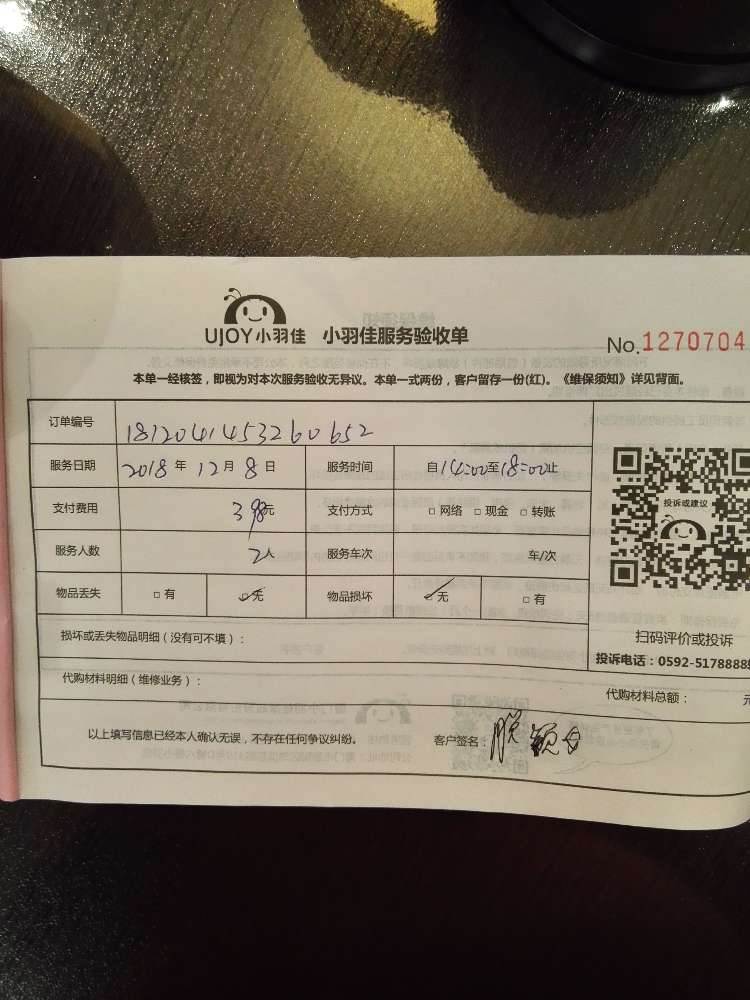 UJOY小羽佳 小羽佳服务验收单
No.1270704
本单一经核签，即视为对本次服务验收无异议。本单一式两份，客户留存一份(红)。《维保须知》详见背面。
订单编号 1812041453260652
服务日期 2018年12月8日 服务时间 自14:00至18:00止
支付费用 398元 支付方式 □网络 □现金 □转账
投诉或建议
服务人数 2人 服务车次 车/次
物品丢失 □有 ☑无 物品损坏 ☑无 □有
损坏或丢失物品明细（没有可不填）：
扫码评价或投诉
投诉电话：0592-5178888
代购材料明细（维修业务）：
代购材料总额： 元
以上填写信息已经本人确认无误，不存在任何争议纠纷。 客户签名：